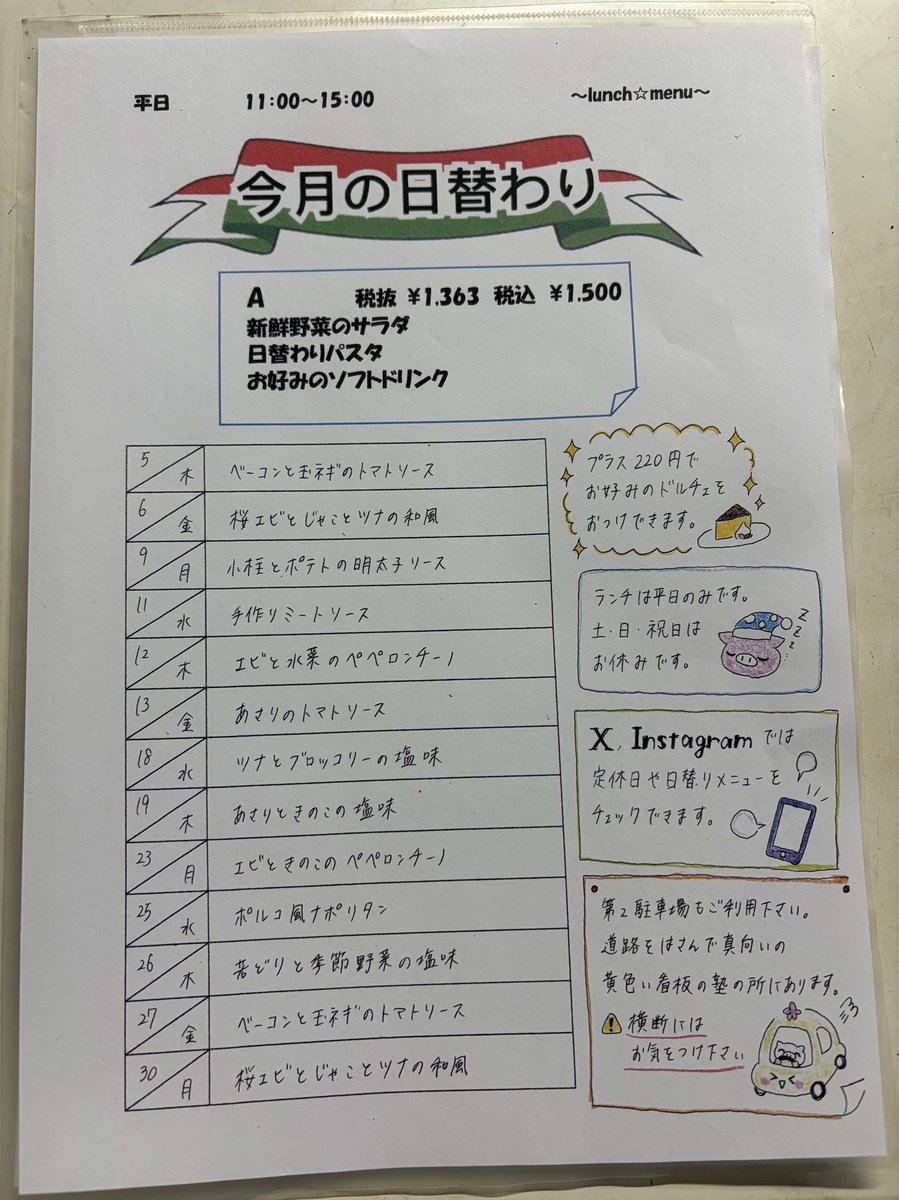 平日 11:00～15:00 ～lunch☆menu～
今月の日替わり
A 税抜 ¥1,363 税込 ¥1,500
新鮮野菜のサラダ
日替わりパスタ
お好みのソフトドリンク
5 木 ベーコンと玉ネギのトマトソース
6 金 桜エビとじゃことツナの和風
9 月 小柱とポテトの明太子ソース
11 水 手作りミートソース
12 木 エビと水菜のペペロンチーノ
13 金 あさりのトマトソース
18 水 ツナとブロッコリーの塩味
19 木 あさりときのこの塩味
23 月 エビときのこのペペロンチーノ
25 水 ポルコ風ナポリタン
26 木 若どりと季節野菜の塩味
27 金 ベーコンと玉ネギのトマトソース
30 月 桜エビとじゃことツナの和風
プラス220円で
お好みのドルチェを
おつけできます。
ランチは平日のみです。
土・日・祝日は
お休みです。
zzz
X, Instagramでは
定休日や日替りメニューを
チェックできます。
第2駐車場もご利用下さい。
道路をはさんで真向いの
黄色い看板の塾の所にあります。
⚠横断には
お気をつけ下さい